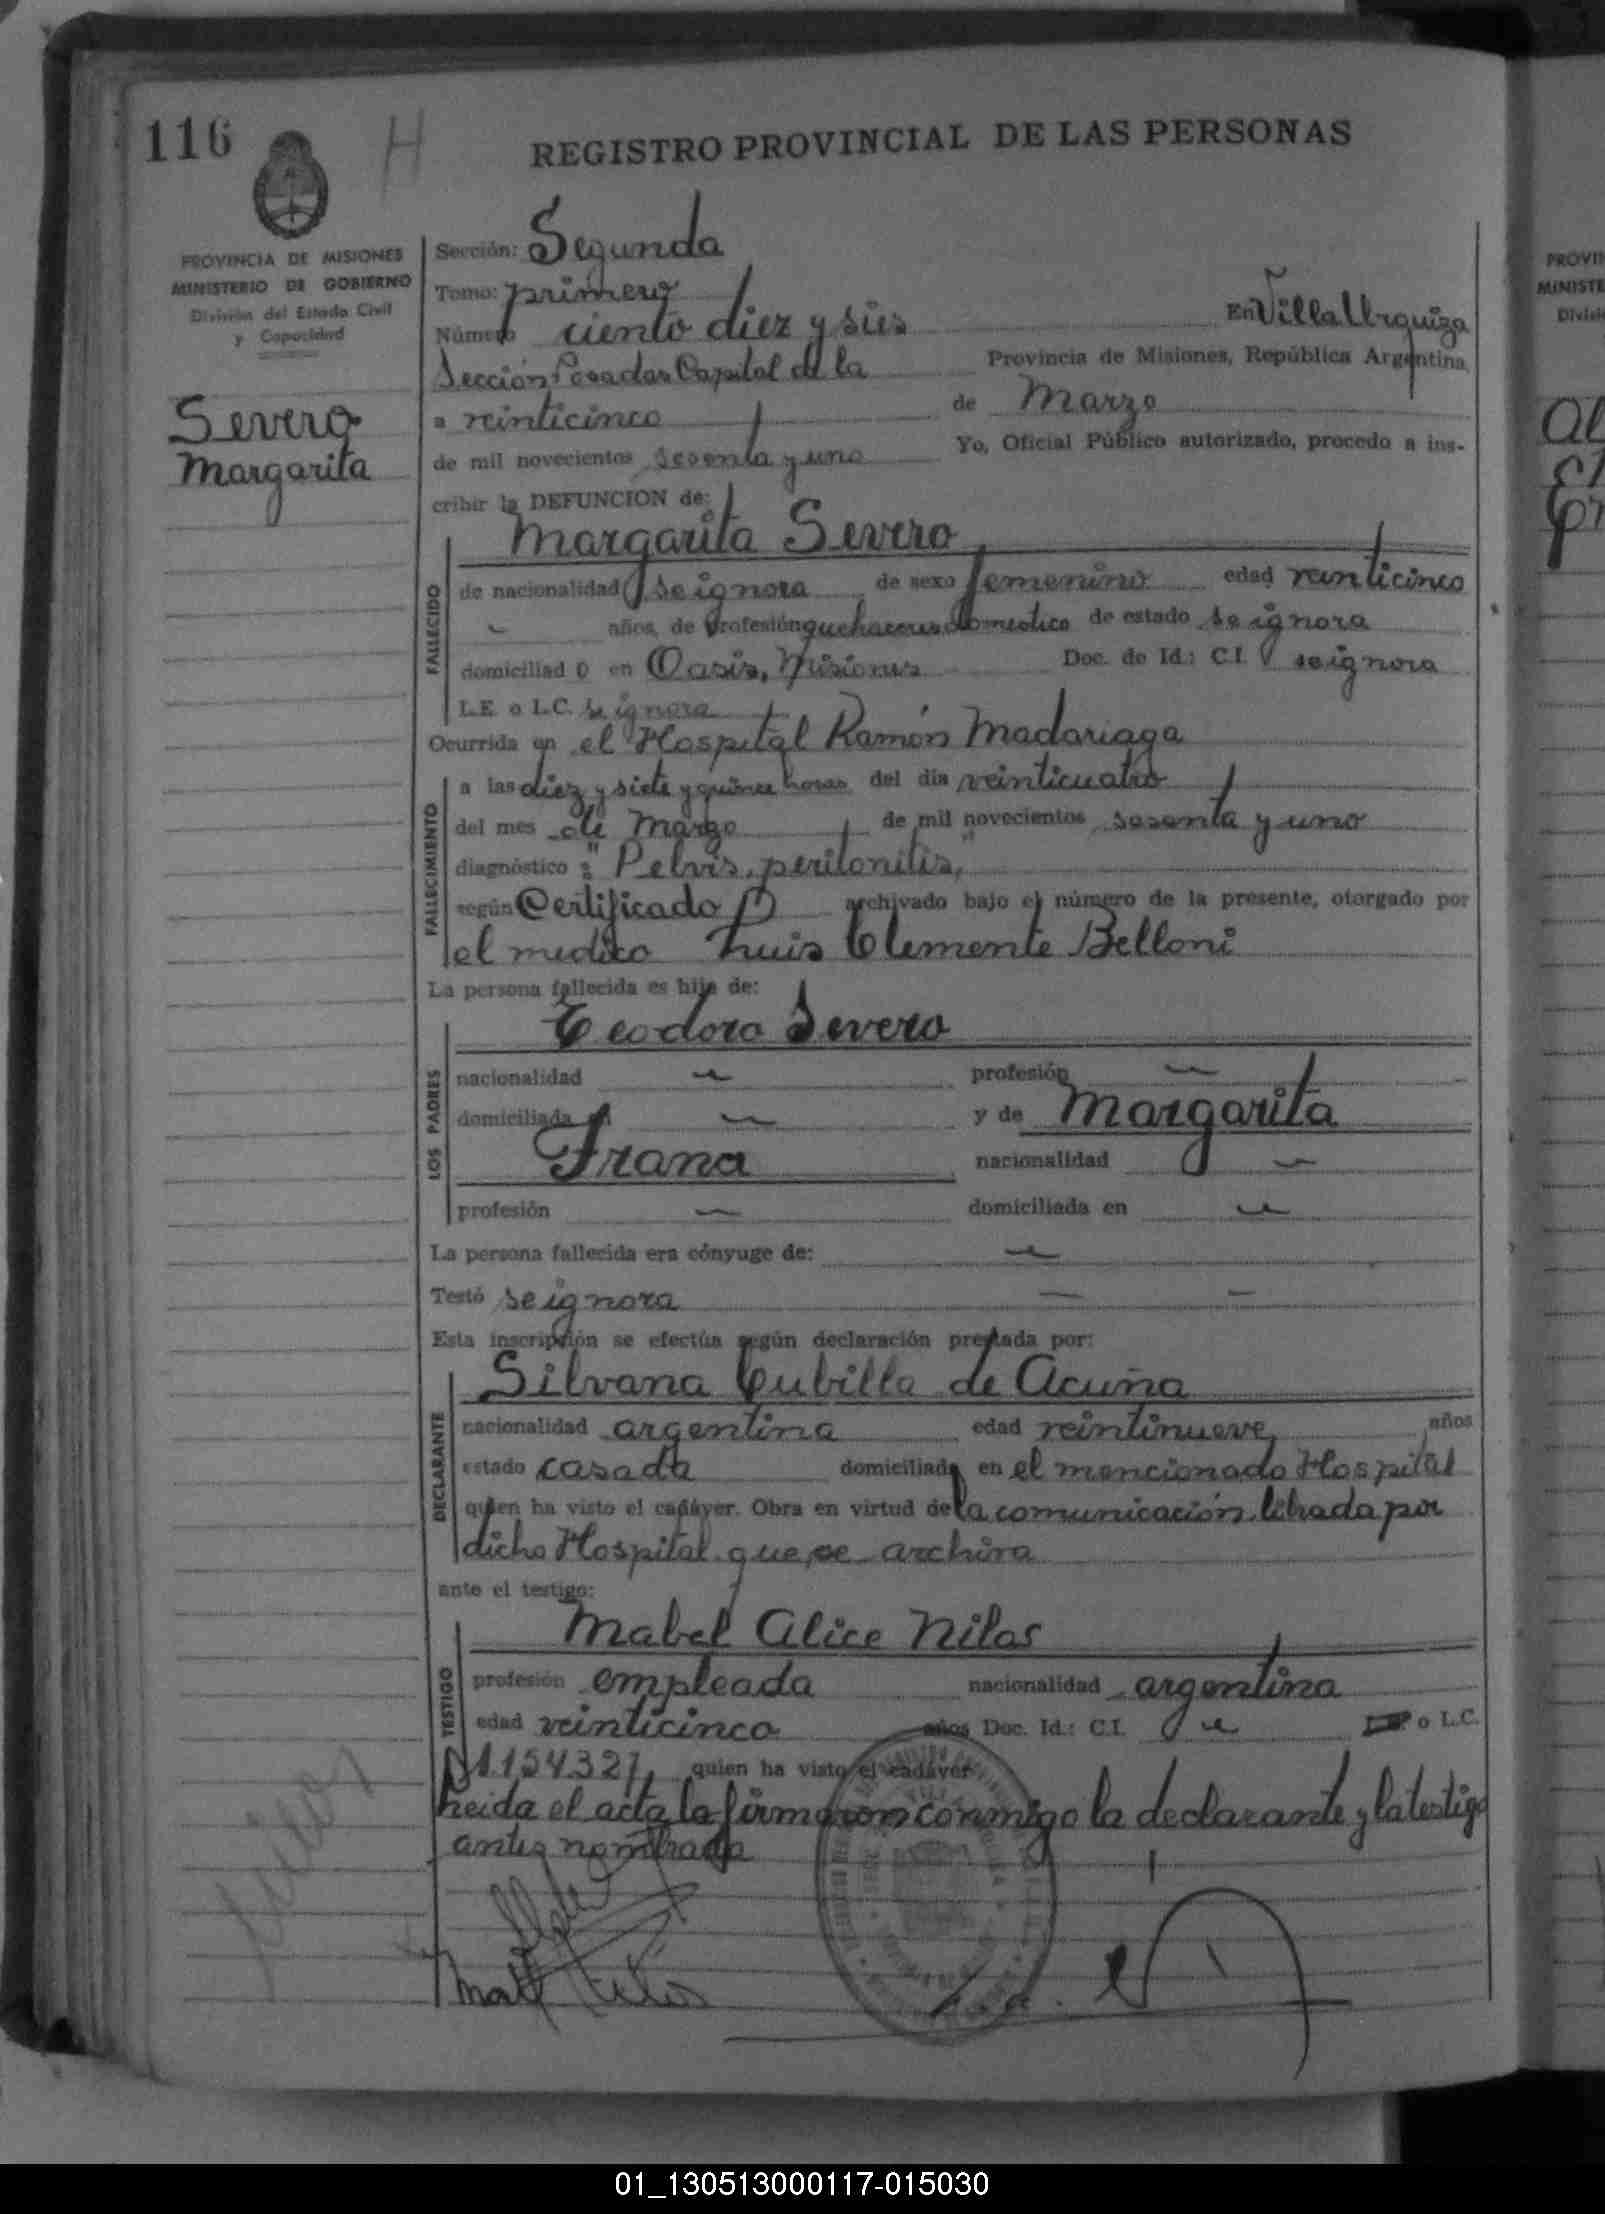 116
H
REGISTRO PROVINCIAL DE LAS PERSONAS
PROVINCIA DE MISIONES
MINISTERIO DE GOBIERNO
División del Estado Civil
y Capacidad
Severo
Margarita
Sección: Segunda
Tomo: primero
Número ciento diez y seis En Villa Urquiza
Sección Posadas Capital de la Provincia de Misiones, República Argentina,
a veinticinco de Marzo
de mil novecientos sesenta y uno Yo, Oficial Público autorizado, procedo a ins-
cribir la DEFUNCION de:
Margarita Severo
FALLECIDO
de nacionalidad se ignora de sexo femenino edad veinticinco
años, de profesión quehaceres domestico de estado se ignora
domiciliad o en Oasis, Misiones Doc. de Id.: C.I. se ignora
L.E. o L.C. se ignora
Ocurrida en el Hospital Ramón Madariaga
FALLECIMIENTO
a las diez y siete y quince horas del día veinticuatro
del mes de Marzo de mil novecientos sesenta y uno
diagnóstico: "Pelvis, peritonitis,"
según Certificado archivado bajo el número de la presente, otorgado por
el medico Luis Clemente Belloni
La persona fallecida es hija de:
LOS PADRES
Teodoro Severo
nacionalidad profesión
domiciliada en y de Margarita
Frana nacionalidad
profesión domiciliada en
La persona fallecida era cónyuge de:
Testó se ignora
Esta inscripción se efectúa según declaración prestada por:
DECLARANTE
Silvana Cubilla de Acuña
nacionalidad argentina edad veintinueve años
estado casada domiciliada en el mencionado Hospital
quien ha visto el cadáver. Obra en virtud de la comunicación librada por
dicho Hospital que se archiva
ante el testigo:
TESTIGO
Mabel Alice Nilos
profesión empleada nacionalidad argentina
edad veinticinco años Doc. Id.: C.I. o L.C.
1.154.327, quien ha visto el cadáver
Leida el acta la firmaron conmigo la declarante y la testigo
antes nombrada
PROVIN
MINISTE
Divisió
01_130513000117-015030